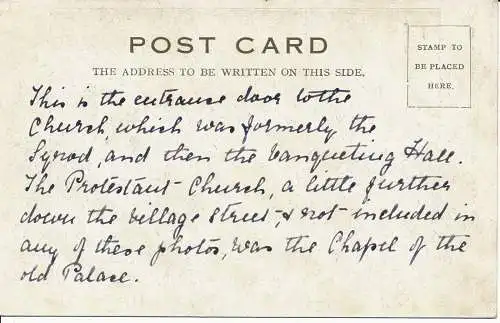 POST CARD
THE ADDRESS TO BE WRITTEN ON THIS SIDE.
STAMP TO
BE PLACED
HERE.
This is the entrance door to the
Church, which was formerly the
Synod, and then the Banqueting Hall.
The Protestant Church, a little further
down the village street, & not included in
any of these photos, was the Chapel of the
old Palace.